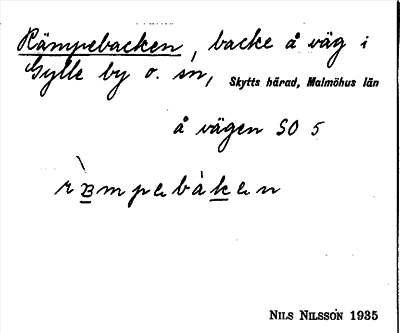 Rämpebacken, backe å väg i
Gylle by o. sn, Skytts härad, Malmöhus län
å vägen SO 5
NILS NILSSON 1935